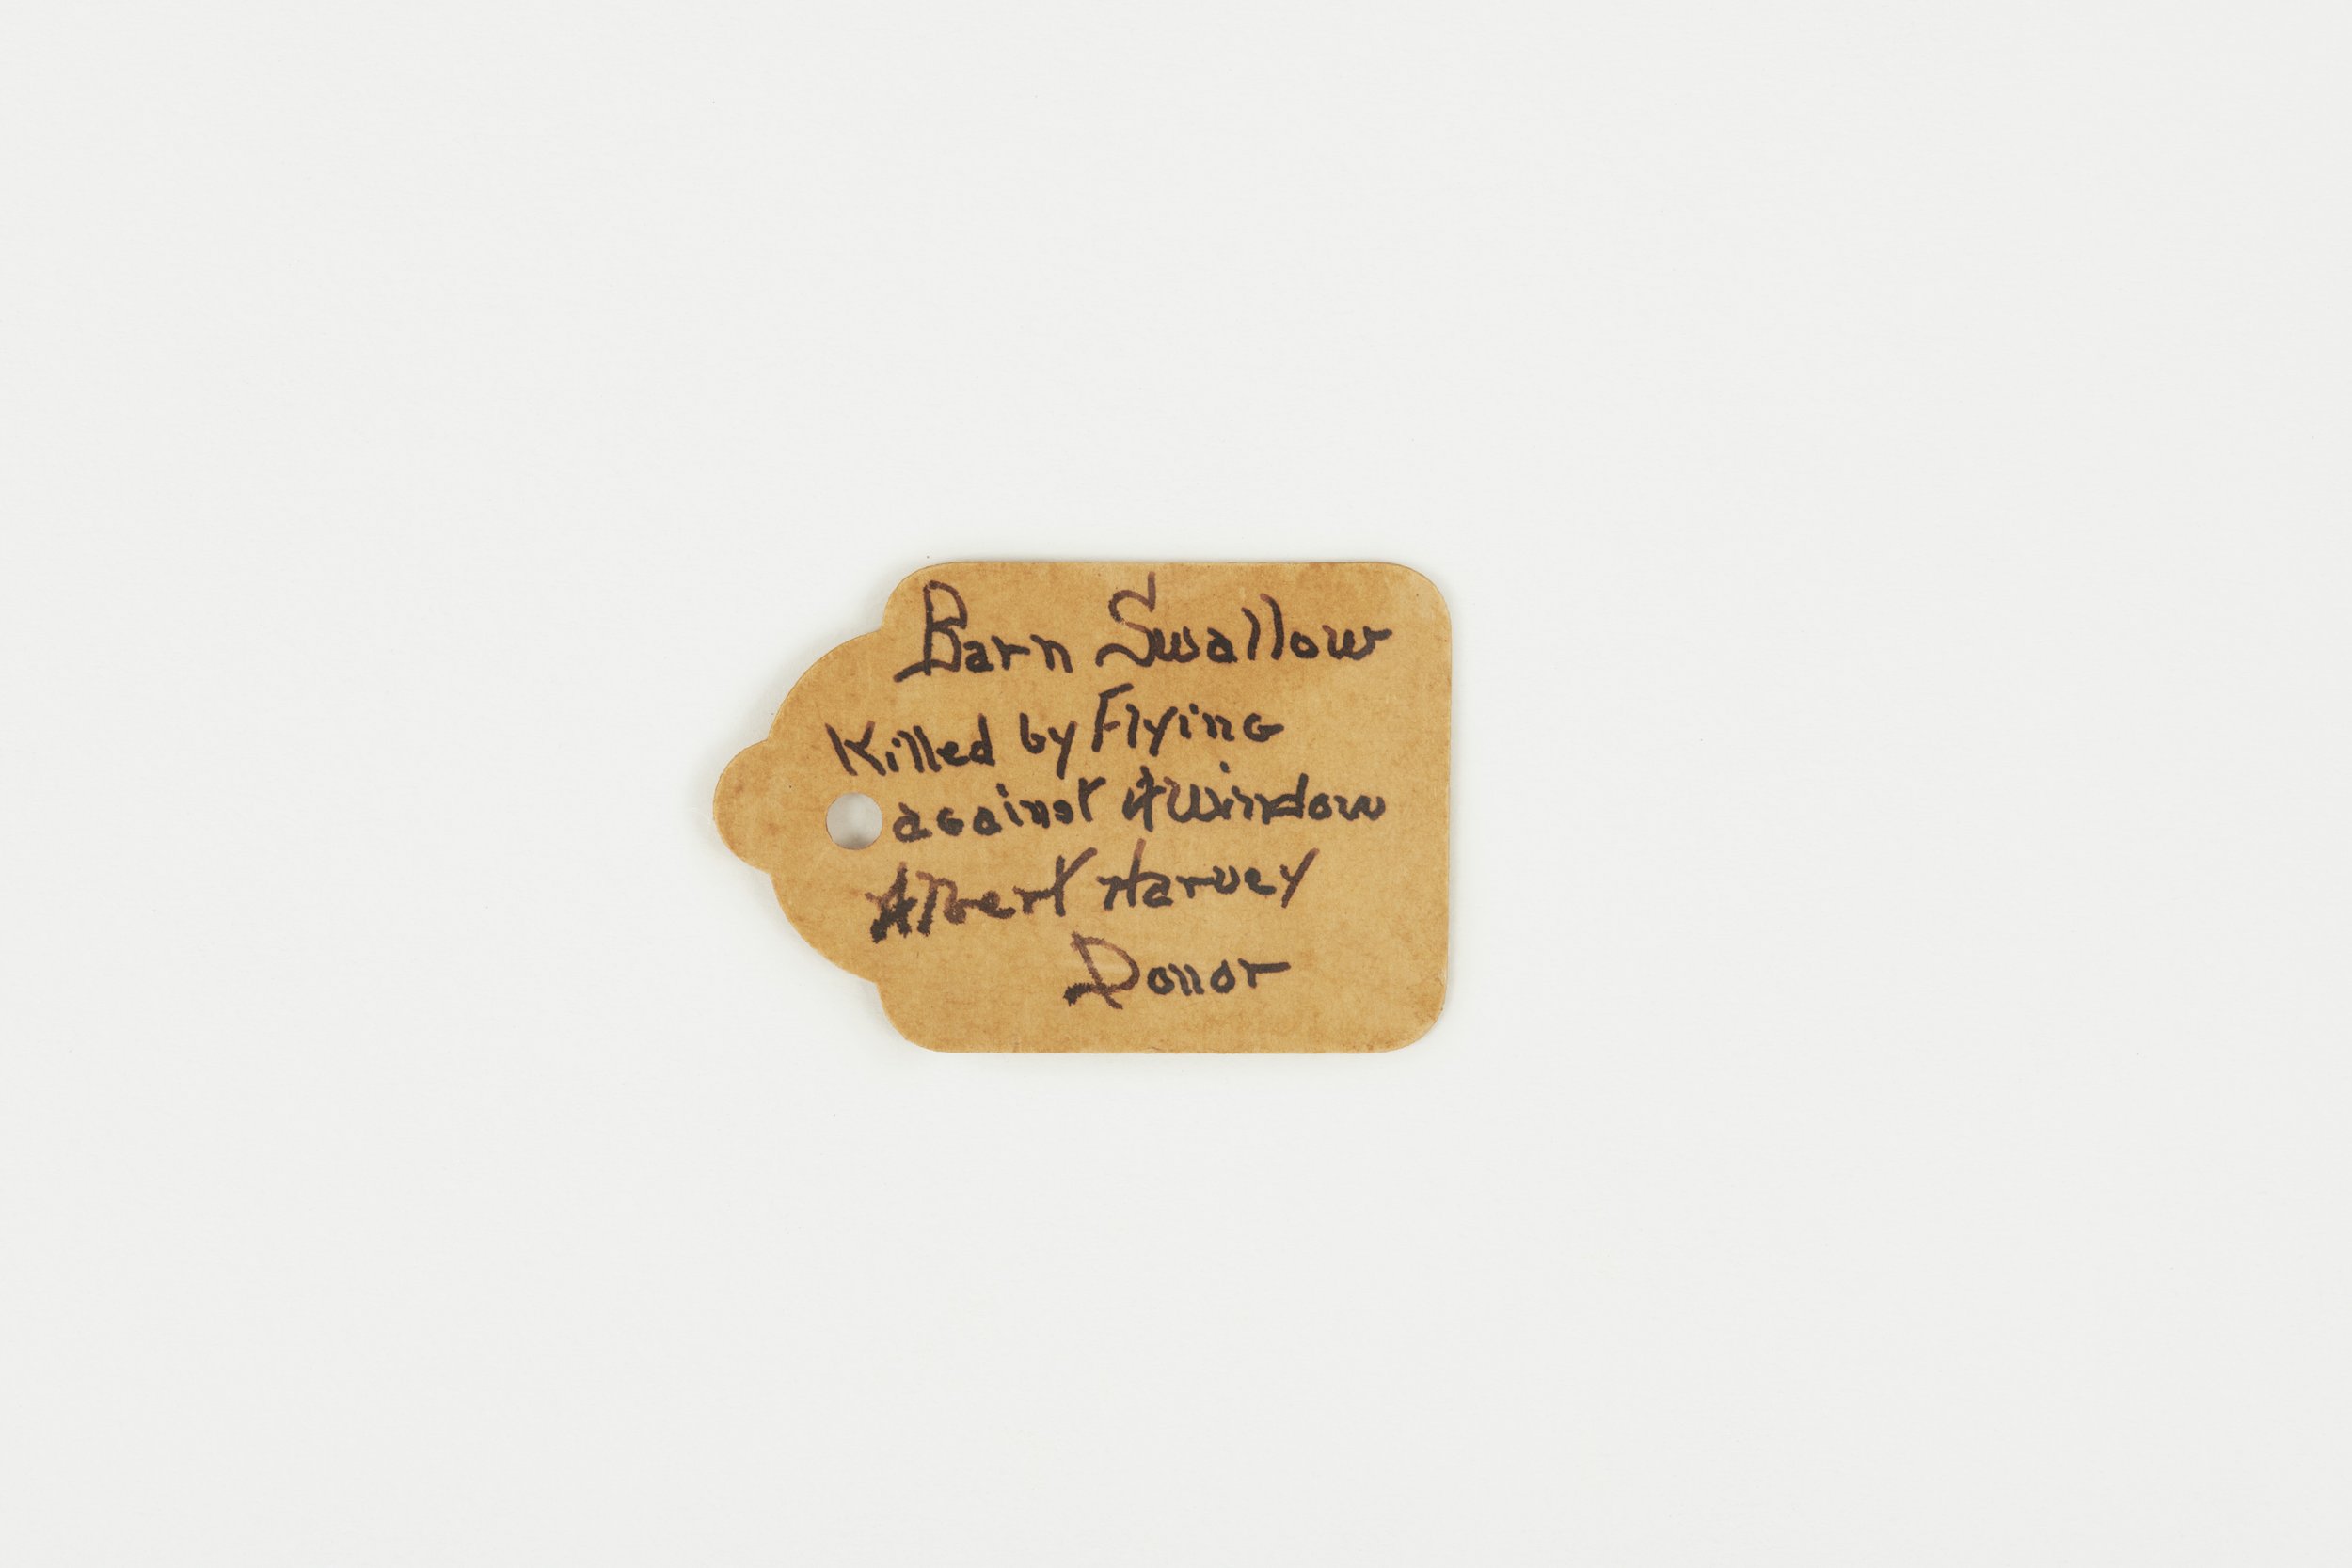 Barn Swallow
Killed by Flying
against A Window
Albert Harvey
Donor